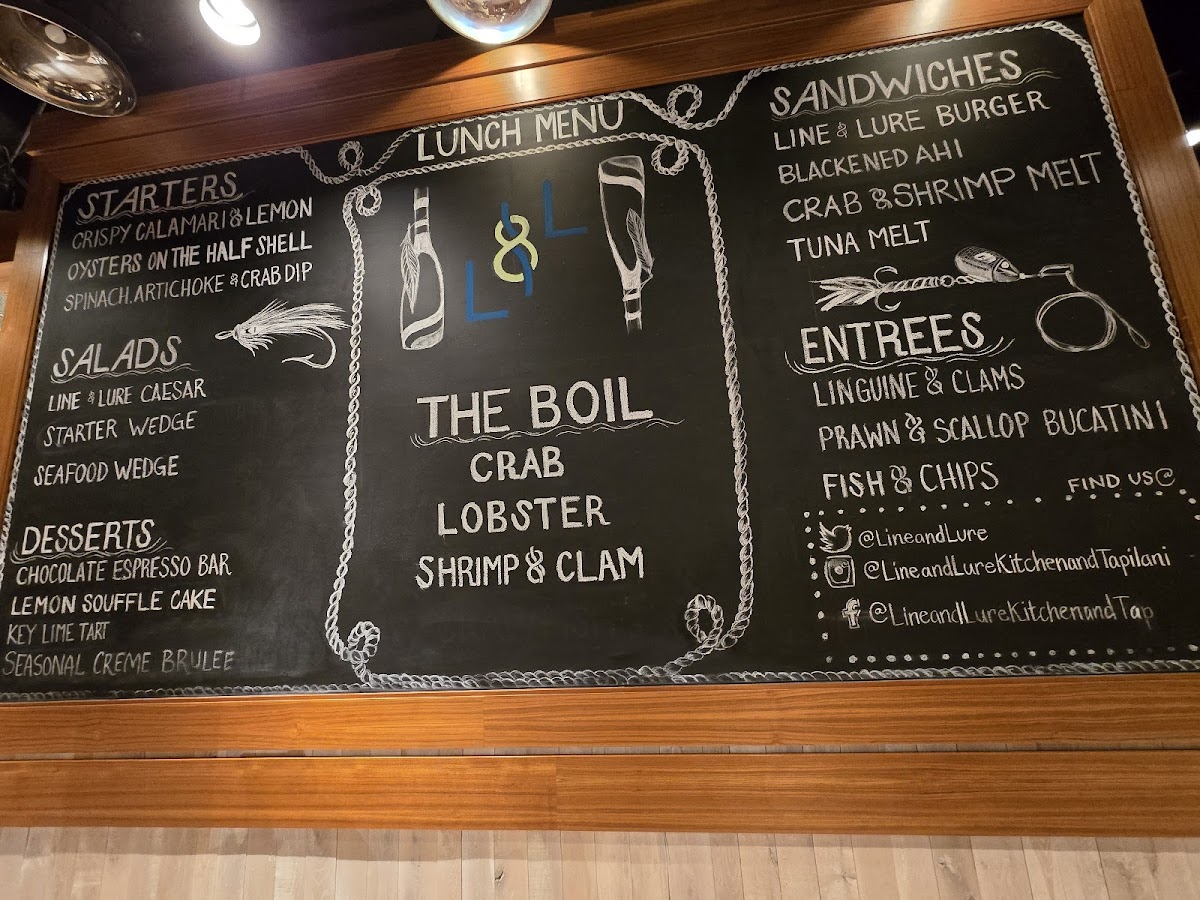 LUNCH MENU
STARTERS
CRISPY CALAMARI & LEMON
OYSTERS ON THE HALF SHELL
SPINACH, ARTICHOKE & CRAB DIP
SALADS
LINE & LURE CAESAR
STARTER WEDGE
SEAFOOD WEDGE
DESSERTS
CHOCOLATE ESPRESSO BAR
LEMON SOUFFLE CAKE
KEY LIME TART
SEASONAL CREME BRULEE
L&L
THE BOIL
CRAB
LOBSTER
SHRIMP & CLAM
SANDWICHES
LINE & LURE BURGER
BLACKENED AHI
CRAB & SHRIMP MELT
TUNA MELT
ENTREES
LINGUINE & CLAMS
PRAWN & SCALLOP BUCATINI
FISH & CHIPS
FIND US @
@LineandLure
@LineandLureKitchenandTapilani
@LineandLureKitchenandTap